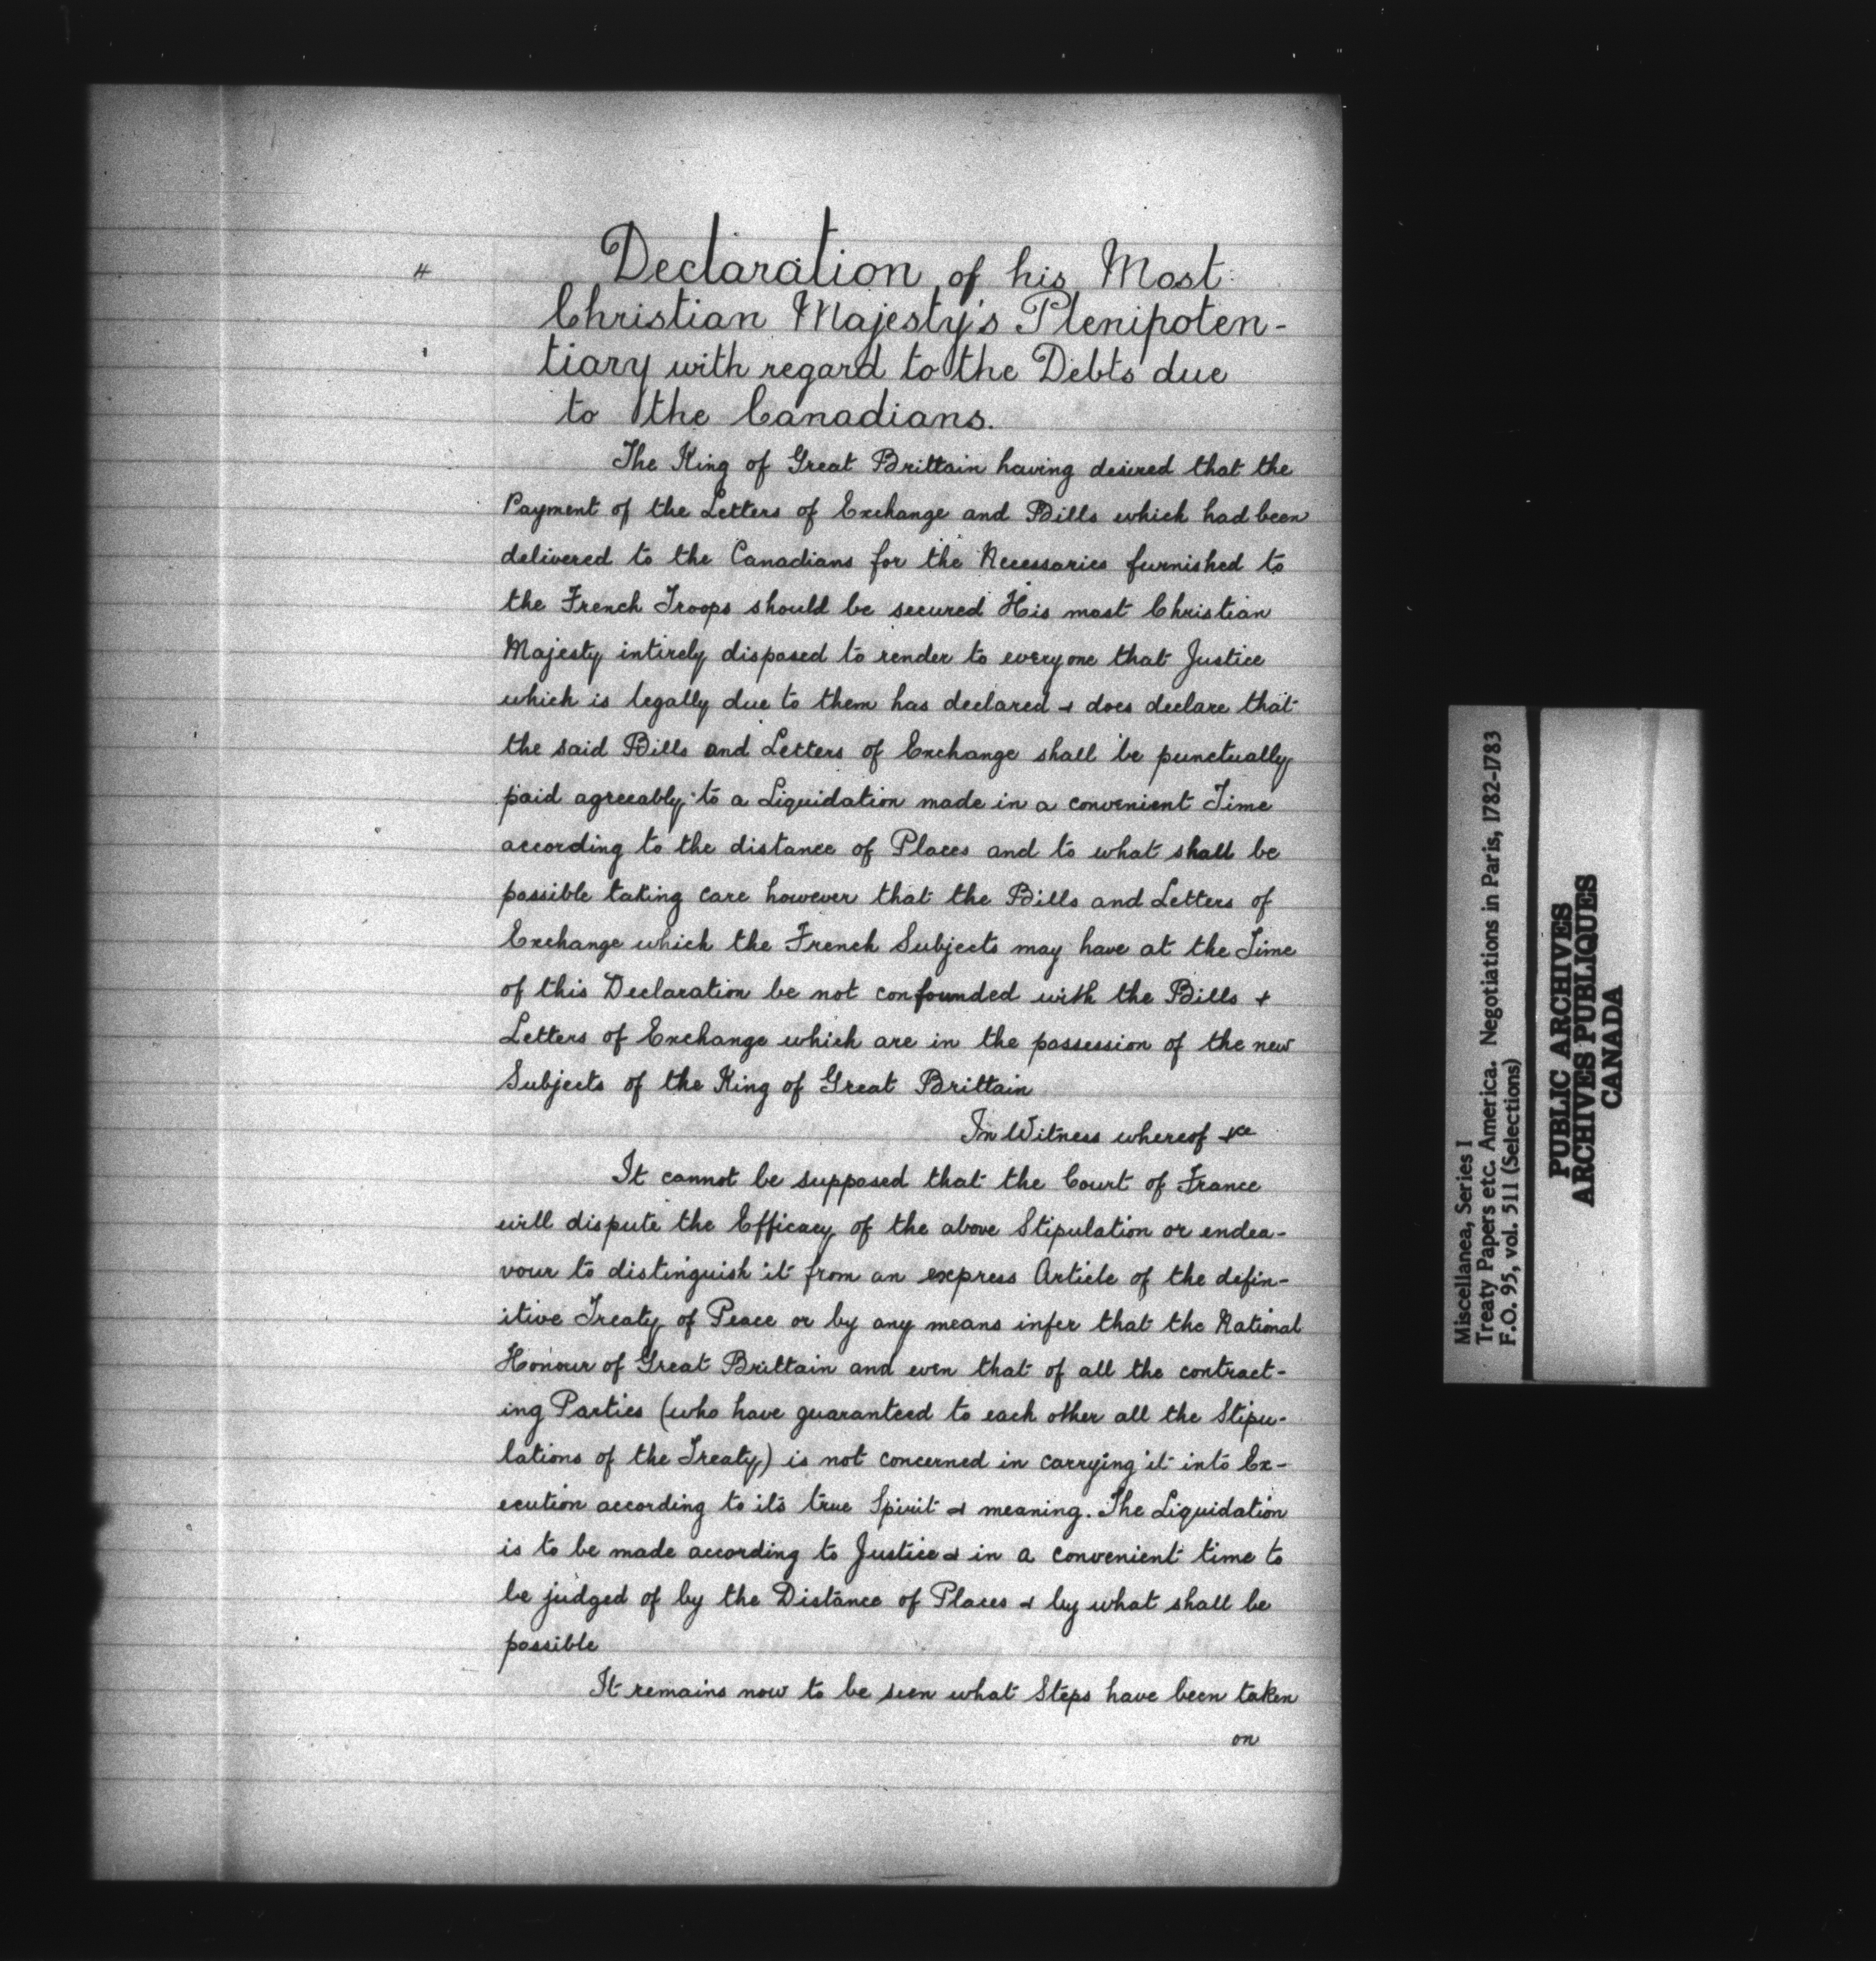 "
Declaration of his Most
Christian Majesty's Plenipoten-
tiary with regard to the Debts due
to the Canadians.
The King of Great Brittain having desired that the
Payment of the Letters of Exchange and Bills which had been
delivered to the Canadians for the Necessaries furnished to
the French Troops should be secured His most Christian
Majesty intirely disposed to render to everyone that Justice
which is legally due to them has declared & does declare that
the said Bills and Letters of Exchange shall be punctually
paid agreeably to a Liquidation made in a convenient Time
according to the distance of Places and to what shall be
possible taking care however that the Bills and Letters of
Exchange which the French Subjects may have at the Time
of this Declaration be not confounded with the Bills &
Letters of Exchange which are in the possession of the new
Subjects of the King of Great Brittain
In Witness whereof &ca
It cannot be supposed that the Court of France
will dispute the Efficacy of the above Stipulation or endea-
vour to distinguish it from an express Article of the defin-
itive Treaty of Peace or by any means infer that the National
Honour of Great Brittain and even that of all the contract-
ing Parties (who have guaranteed to each other all the Stipu-
lations of the Treaty) is not concerned in carrying it into Ex-
ecution according to its true Spirit & meaning. The Liquidation
is to be made according to Justice & in a convenient time to
be judged of by the Distance of Places & by what shall be
possible
It remains now to be seen what Steps have been taken
on
Miscellanea, Series I
Treaty Papers etc. America. Negotiations in Paris, 1782-1783
F.O. 95, vol. 511 (Selections)
PUBLIC ARCHIVES
ARCHIVES PUBLIQUES
CANADA